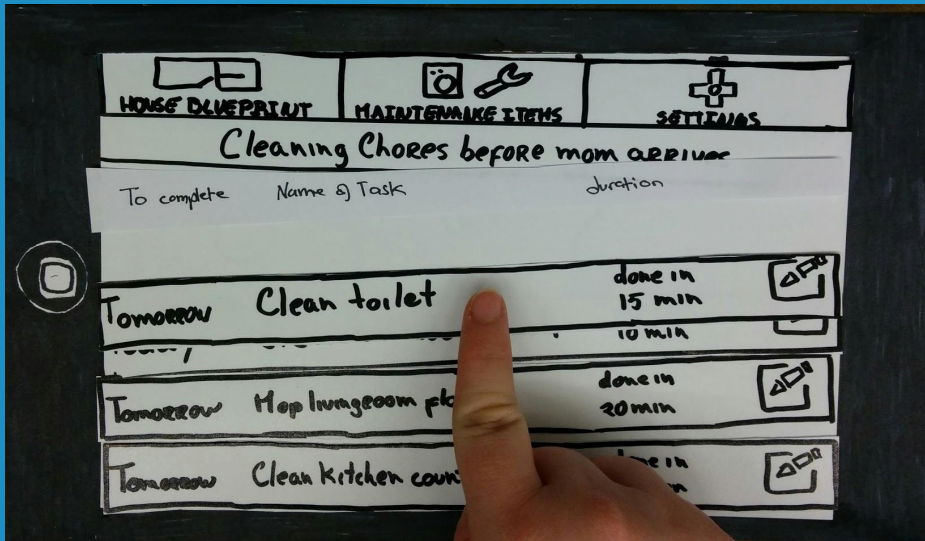 HOUSE BLUEPRINT
MAINTENANCE ITEMS
SETTINGS
Cleaning Chores before mom arrives
To complete Name of Task duration
Tomorrow Clean toilet done in
15 min
10 min
Tomorrow Mop livingroom done in
20 min
Tomorrow Clean Kitchen